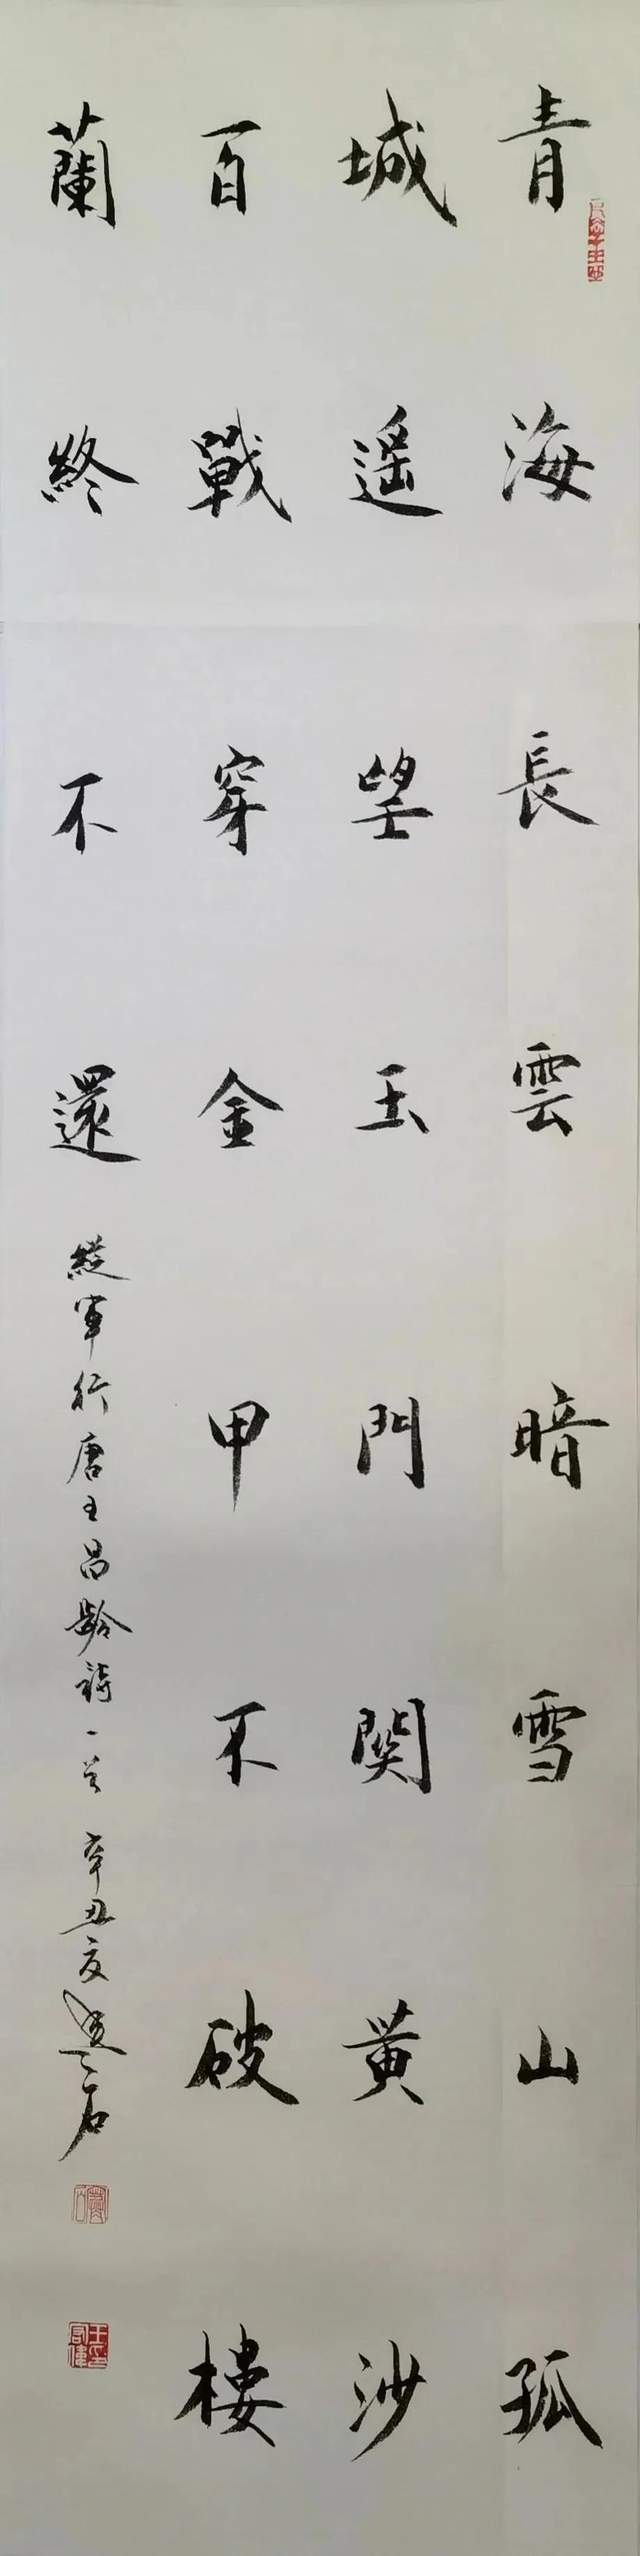 青海長雲暗雪山孤
城遥望玉門関黄沙
百戰穿金甲不破樓
蘭終不還
從軍行唐王昌齡詩一首 辛丑夏